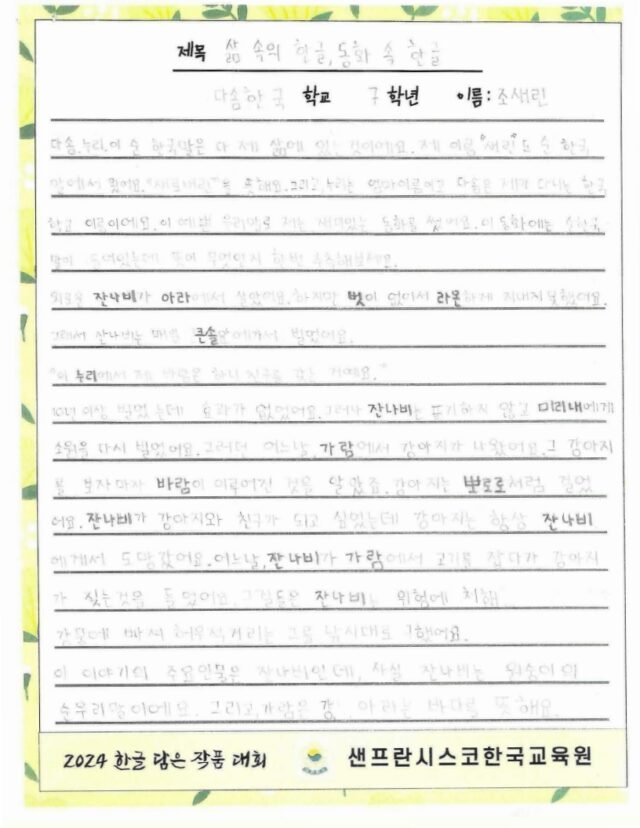 제목 삶 속의 한글, 동화 속 한글
다솜한국 학교 7 학년 이름: 조새린
다솜,누리,이 순 한국말은 다 제 삶에 있는 것이에요. 제 이름 "새린"도 순 한국
말에서 왔어요. 를 뜻해요. 그리고, 누리는 엄마이름이고 다솜은 제가 다니는 한국
학교 이름이에요. 이 예쁜 우리말로 저는 재미있는 동화를 썼어요. 이 동화에는 순한국
말이 들어있는데 뜻이 무엇인지 한번 추측해보세요.
외로운 잔나비가 아라에서 살았어요. 하지만 벗이 없어서 라온하게 지내지 못했어요.
그래서 잔나비는 매일 큰솔 에가서 빌었어요.
"이 누리에서 제 바람은 하나 친구를 갖는 거예요."
10년 이상 빌었는데 효과가 없었어요. 그러나 잔나비는 포기하지 않고 미리내에게
소원을 다시 빌었어요. 그러던 어느날, 가람에서 강아지가 나왔어요. 그 강아지
를 보자마자 바람이 이루어진 것을 알았죠. 강아지는 뽀로로처럼 걸었
어요. 잔나비가 강아지와 친구가 되고 싶었는데 강아지는 항상 잔나비
에게서 도망갔어요. 어느날, 잔나비가 가람에서 고기를 잡다가 강아지
가 짖는것을 들었어요. 잔나비는 위험에 처해
강물에 빠져 허우적거리는 그를 낚시대로 구했어요.
이 이야기의 주요인물은 잔나비인데, 사실 잔나비는 원숭이의
순우리말이에요. 그리고, 가람은 강, 아라는 바다를 뜻해요.
2024 한글 담은 작품 대회 샌프란시스코한국교육원